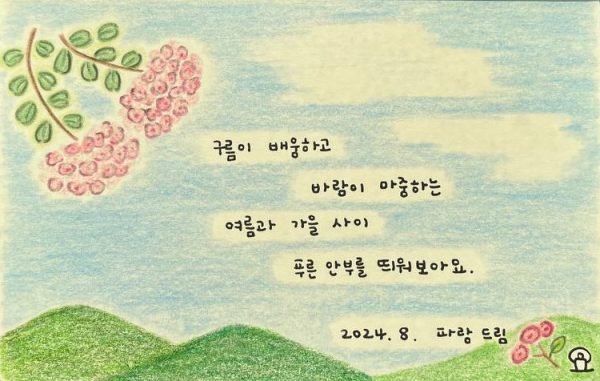 구름이 배웅하고
바람이 마중하는
여름과 가을 사이
푸른 안부를 띄워보아요.
2024. 8. 파랑 드림